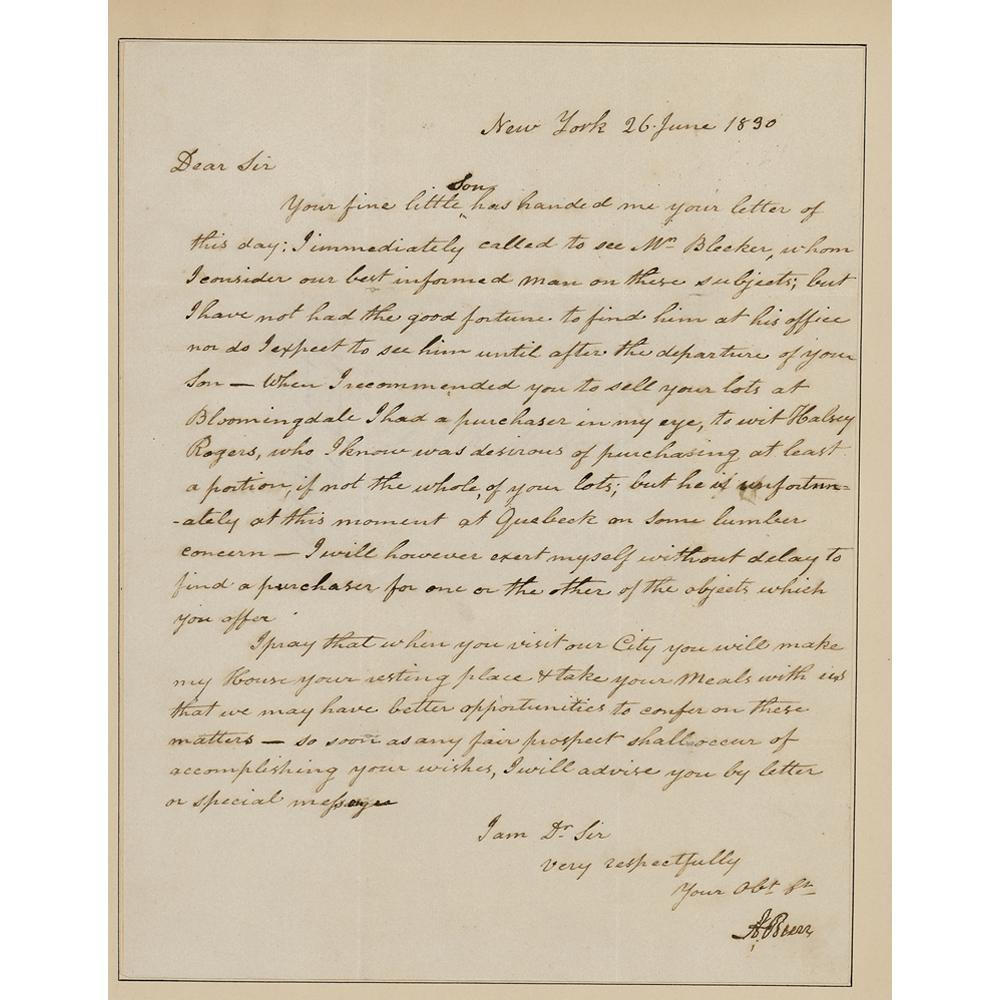 New York 26 June 1830
Dear Sir
Your fine little son has handed me your letter of
this day; I immediately called to see Mr. Bleeker, whom
I consider our best informed man on these subjects; but
I have not had the good fortune to find him at his office
nor do I expect to see him until after the departure of your
Son — When I recommended you to sell your lots at
Bloomingdale I had a purchaser in my eye, to wit Halsey
Rogers, who I know was desirous of purchasing at least
a portion, if not the whole, of your lots; but he is unfortun=
-ately at this moment at Quebeck on some lumber
concern — I will however exert myself without delay to
find a purchaser for one or the other of the objects which
you offer
I pray that when you visit our City you will make
my House your resting place & take your Meals with us
that we may have better opportunities to confer on these
matters — so soon as any fair prospect shall occur of
accomplishing your wishes, I will advise you by letter
or special message
I am Dr. Sir
very respectfully
Your Obt. St.
A. Burr